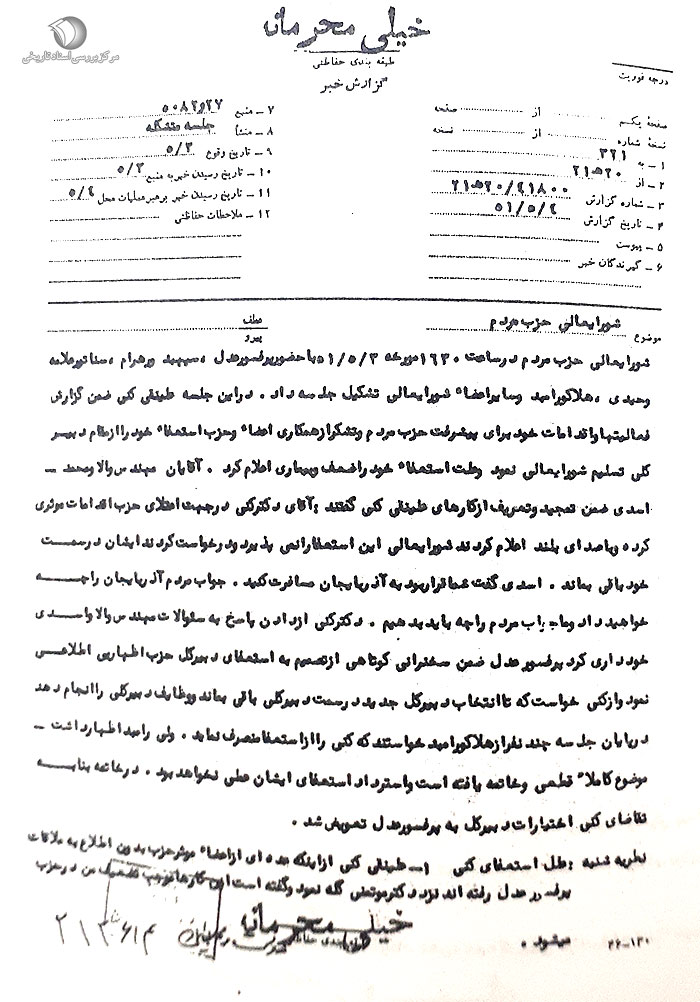 مرکز بررسی اسناد تاریخی
خیلی محرمانه
طبقه بندی حفاظتی
گزارش خبر
درجه فوریت
صفحهٔ یکم از صفحه
نسخهٔ شماره از نسخه
۱ ـ به ۳۲۱
۲ ـ از ۲۰ه۲۱
۳ ـ شماره گزارش ۲۱ه۲۰/۴۱۸۰۰
۴ ـ تاریخ گزارش ۵۱/۵/۴
۵ ـ پیوست
۶ ـ گیرندگان خبر
۷ ـ منبع
۸ ـ منشأ جلسه متشکله
۹ ـ تاریخ وقوع ۵/۳
۱۰ ـ تاریخ رسیدن خبر به منبع ۵/۳
۱۱ ـ تاریخ رسیدن خبر برهبر عملیات محل ۵/۴
۱۲ ـ ملاحظات حفاظتی
موضوع شورایعالی حزب مردم
عطف
پیرو
شورایعالی حزب مردم در ساعت ۱۶۳۰ مورخه ۵۱/۵/۳ با حضور پرفسور عدل ، سپهبد ورهرام ، سناتور علامه
وحیدی ، هلاکو رامبد و سایر اعضاء شورایعالی تشکیل جلسه داد . در این جلسه علینقی کنی ضمن گزارش
فعالیتها و اقدامات خود برای پیشرفت حزب مردم و تشکر از همکاری اعضاء و حزب استعفاء خود را از مقام دبیر
کلی تسلیم شورایعالی نمود و علت استعفاء خود را ضعف و بیماری اعلام کرد . آقایان مهندس والا و محمد ـ
اسدی ضمن تمجید و تعریف از کارهای علینقی کنی گفتند : آقای دکتر کنی در جهت اعتلای حزب اقدامات موثری
کرده و با صدای بلند اعلام کردند شورایعالی این استعفا را نمی پذیرد و درخواست کردند ایشان در سمت
خود باقی بماند . اسدی گفت شما قرار بود به آذربایجان مسافرت کنید . جواب مردم آذربایجان را چه
خواهید داد و ما جواب مردم را چه باید بدهیم . دکتر کنی از دادن پاسخ به سئوالات مهندس والا و اسدی
خودداری کرد پرفسور عدل ضمن سخنرانی کوتاهی از تصمیم به استعفای دبیر کل حزب اظهار بی اطلاعی
نمود و از کنی خواست که تا انتخاب دبیر کل جدید در سمت دبیر کلی باقی بماند و وظایف دبیر کلی را انجام دهد
در پایان جلسه چند نفر از هلاکو رامبد خواستند که کنی را از استعفا منصرف نماید . ولی رامبد اظهار داشت ـ
موضوع کاملاً قطعی و خاتمه یافته است و استرداد استعفای ایشان عملی نخواهد بود . در خاتمه بنا به
تقاضای کنی اختیارات دبیر کل به پرفسور عدل تفویض شد .
نظریه شنبه : علل استعفای کنی ۱ـ علینقی کنی از اینکه عده ای از اعضاء موثر حزب بدون اطلاع به ملاقات
پرفسور عدل رفته اند نزد دکتر موتمنی گله نمود و گفته است این کارها موجب تضعیف من در حزب
میشود .
خیلی محرمانه
طبقه بندی حفاظتی
۲۶-۱۳۱